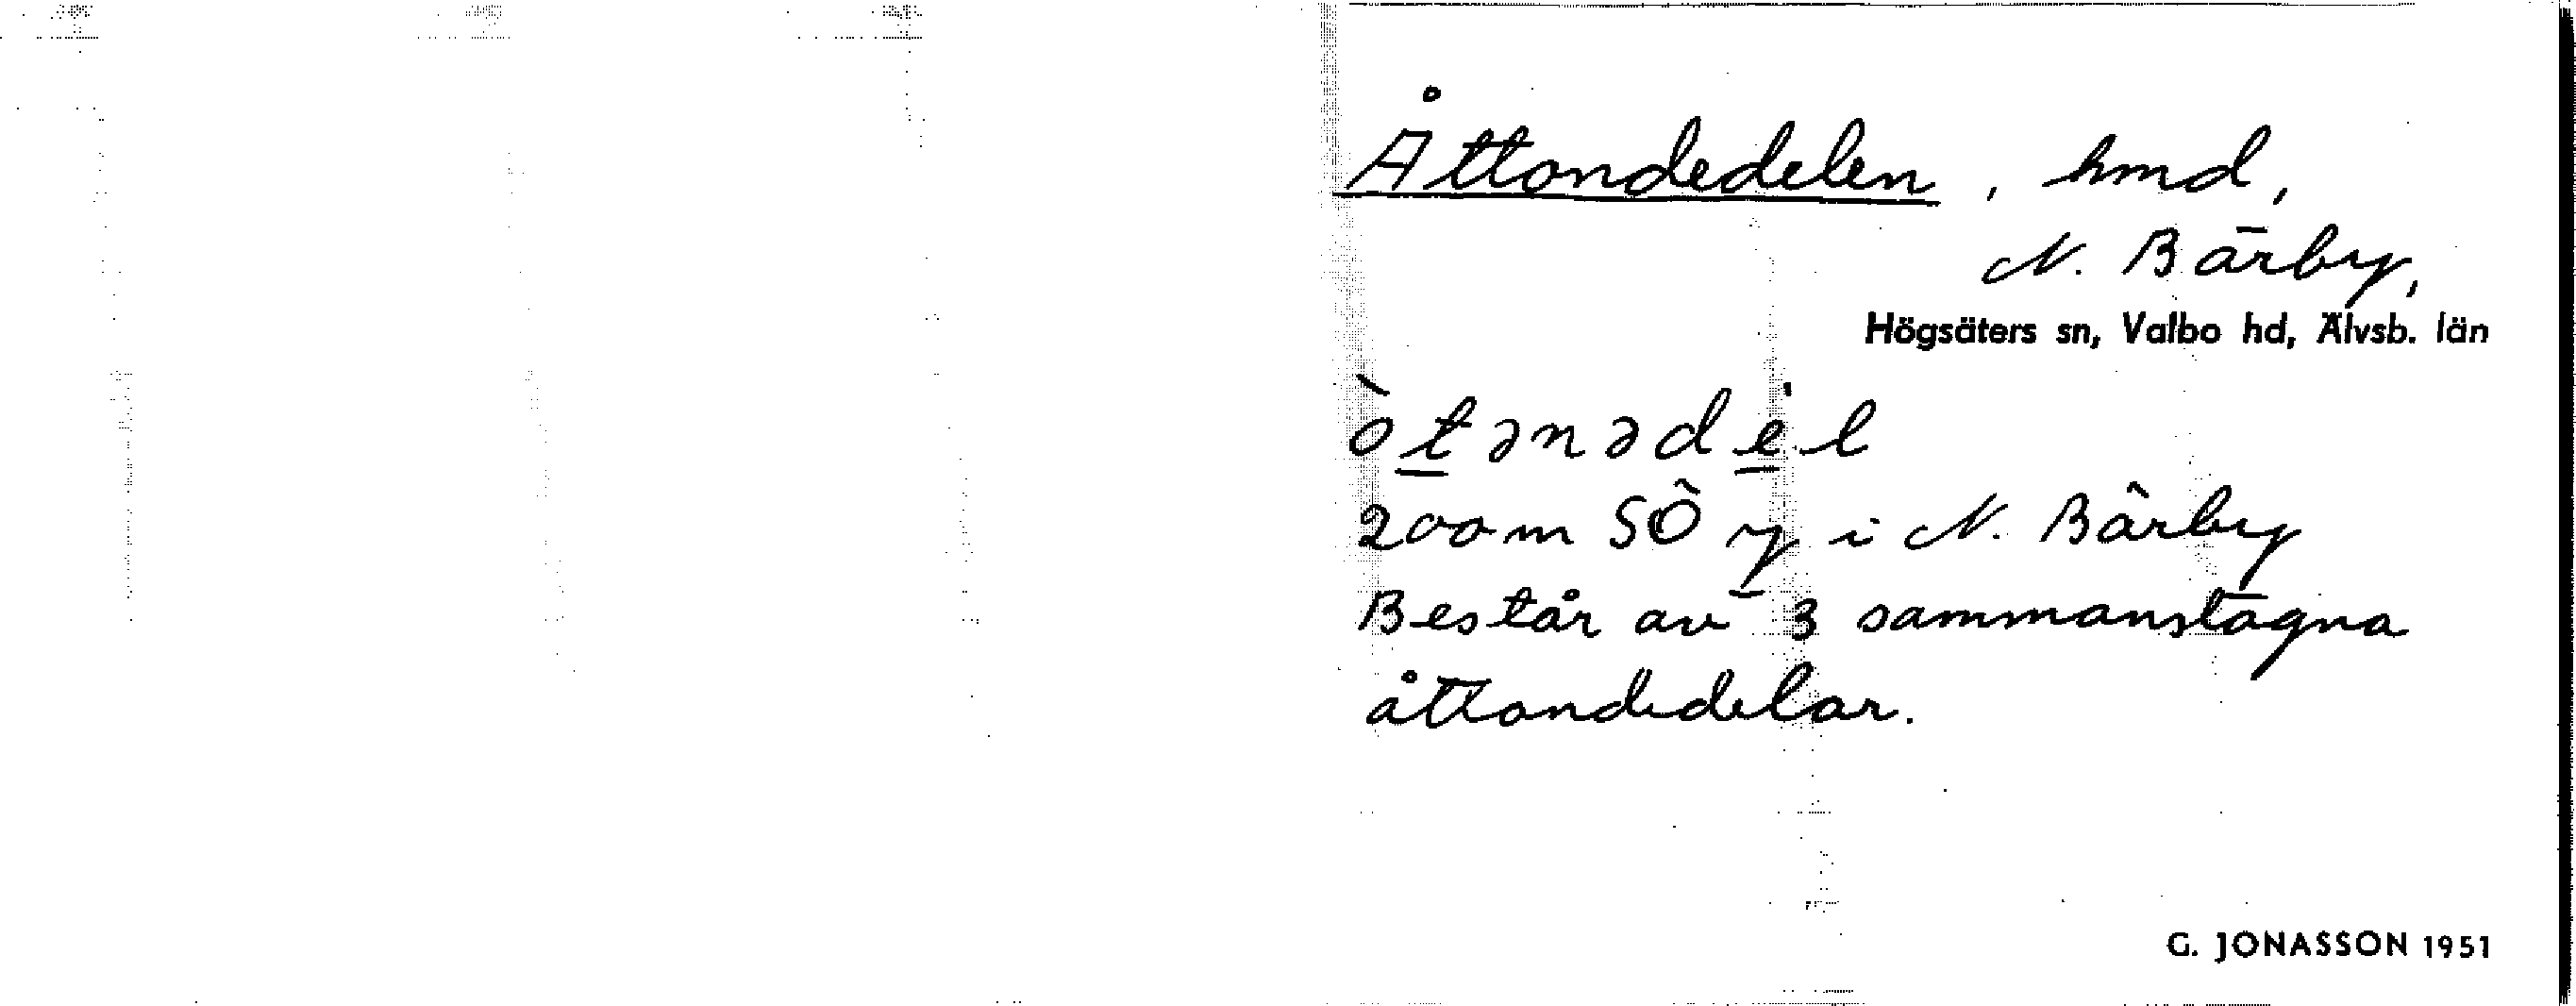 Åttondedelen, hmd,
N. Bärby,
Högsäters sn, Valbo hd, Älvsb. län
òtənədel
200 m SÖ y i N. Bärby
Består av 3 sammanslagna
åttondedelar.
G. JONASSON 1951